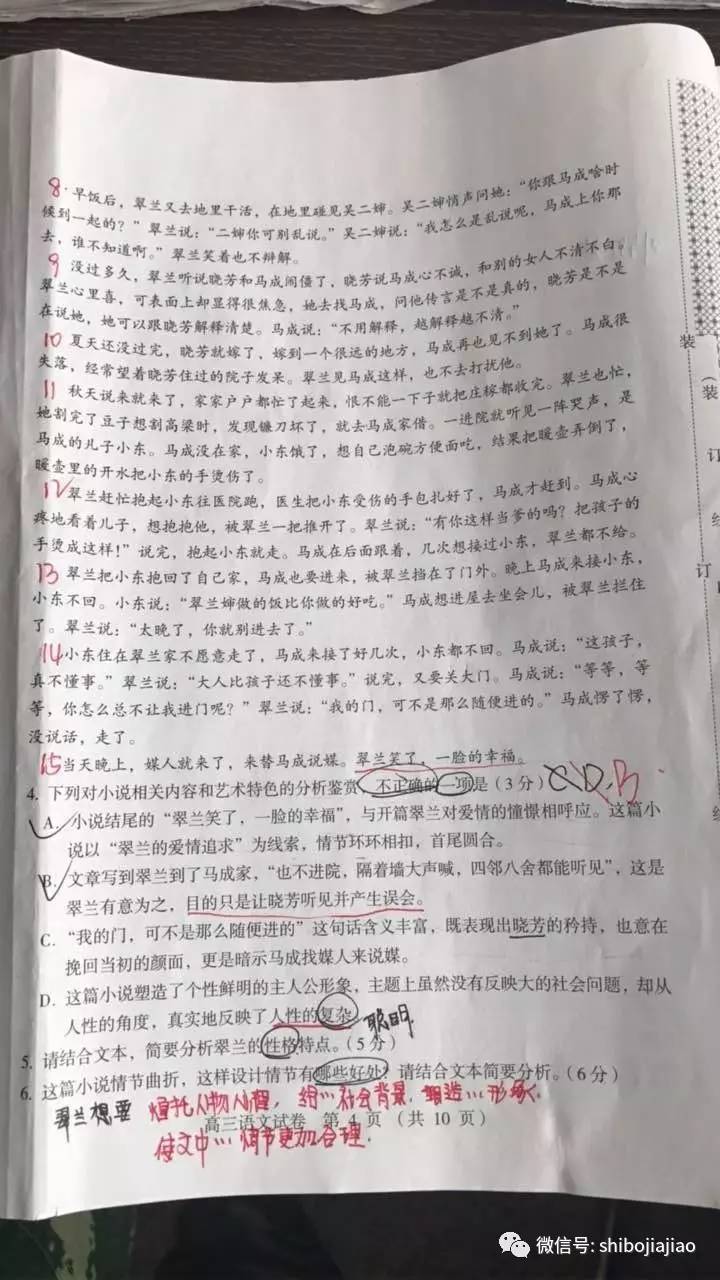 8. 早饭后，翠兰又去地里干活，在地里碰见吴二婶。吴二婶悄声问她：“你跟马成啥时
候到一起的？”翠兰说：“二婶你可别乱说。”吴二婶说：“我怎么是乱说呢，马成上你那
去，谁不知道啊。”翠兰笑着也不辩解。
9 没过多久，翠兰听说晓芳和马成闹僵了，晓芳说马成心不诚，和别的女人不清不白。
翠兰心里喜，可表面上却显得很焦急，她去找马成，问他传言是不是真的，晓芳是不是
在说她，她可以跟晓芳解释清楚。马成说：“不用解释，越解释越不清。”
10 夏天还没过完，晓芳就嫁了，嫁到一个很远的地方，马成再也见不到她了。马成很
失落，经常望着晓芳住过的院子发呆。翠兰见马成这样，也不去打扰他。
11 秋天说来就来了，家家户户都忙了起来，恨不能一下子就把庄稼都收完。翠兰也忙，
她割完了豆子想割高粱时，发现镰刀坏了，就去马成家借。一进院就听见一阵哭声，是
马成的儿子小东。马成没在家，小东饿了，想自己泡碗方便面吃，结果把暖壶弄倒了，
暖壶里的开水把小东的手烫伤了。
12 翠兰赶忙抱起小东往医院跑，医生把小东受伤的手包扎好了，马成才赶到。马成心
疼地看着儿子，想抱抱他，被翠兰一把推开了。翠兰说：“有你这样当爹的吗？把孩子的
手烫成这样！”说完，抱起小东就走。马成在后面跟着，几次想接过小东，翠兰都不给。
13 翠兰把小东抱回了自己家，马成也要进来，被翠兰挡在了门外。晚上马成来接小东，
小东不回。小东说：“翠兰婶做的饭比你做的好吃。”马成想进屋去坐会儿，被翠兰拦住
了。翠兰说：“太晚了，你就别进去了。”
14 小东住在翠兰家不愿意走了，马成来接了好几次，小东都不回。马成说：“这孩子，
真不懂事。”翠兰说：“大人比孩子还不懂事。”说完，又要关大门。马成说：“等等，等
等，你怎么总不让我进门呢？”翠兰说：“我的门，可不是那么随便进的。”马成愣了愣，
没说话，走了。
15 当天晚上，媒人就来了，来替马成说媒。翠兰笑了，一脸的幸福。
4. 下列对小说相关内容和艺术特色的分析鉴赏，不正确的一项是（3分） C D B
A. 小说结尾的“翠兰笑了，一脸的幸福”，与开篇翠兰对爱情的憧憬相呼应。这篇小
说以“翠兰的爱情追求”为线索，情节环环相扣，首尾圆合。
B. 文章写到翠兰到了马成家，“也不进院，隔着墙大声喊，四邻八舍都能听见”，这是
翠兰有意为之，目的只是让晓芳听见并产生误会。
C. “我的门，可不是那么随便进的”这句话含义丰富，既表现出晓芳的矜持，也意在
挽回当初的颜面，更是暗示马成找媒人来说媒。
D. 这篇小说塑造了个性鲜明的主人公形象，主题上虽然没有反映大的社会问题，却从
人性的角度，真实地反映了人性的复杂。 聪明
5. 请结合文本，简要分析翠兰的性格特点。（5分）
6. 这篇小说情节曲折，这样设计情节有哪些好处？请结合文本简要分析。（6分）
翠兰想要 烘托人物心理，给…社会背景. 塑造…形象.
高三语文试卷 第 4 页（共 10 页）
使文中…情节更加合理.
装
（装
订
线
订
线
微信号: shibojiajiao